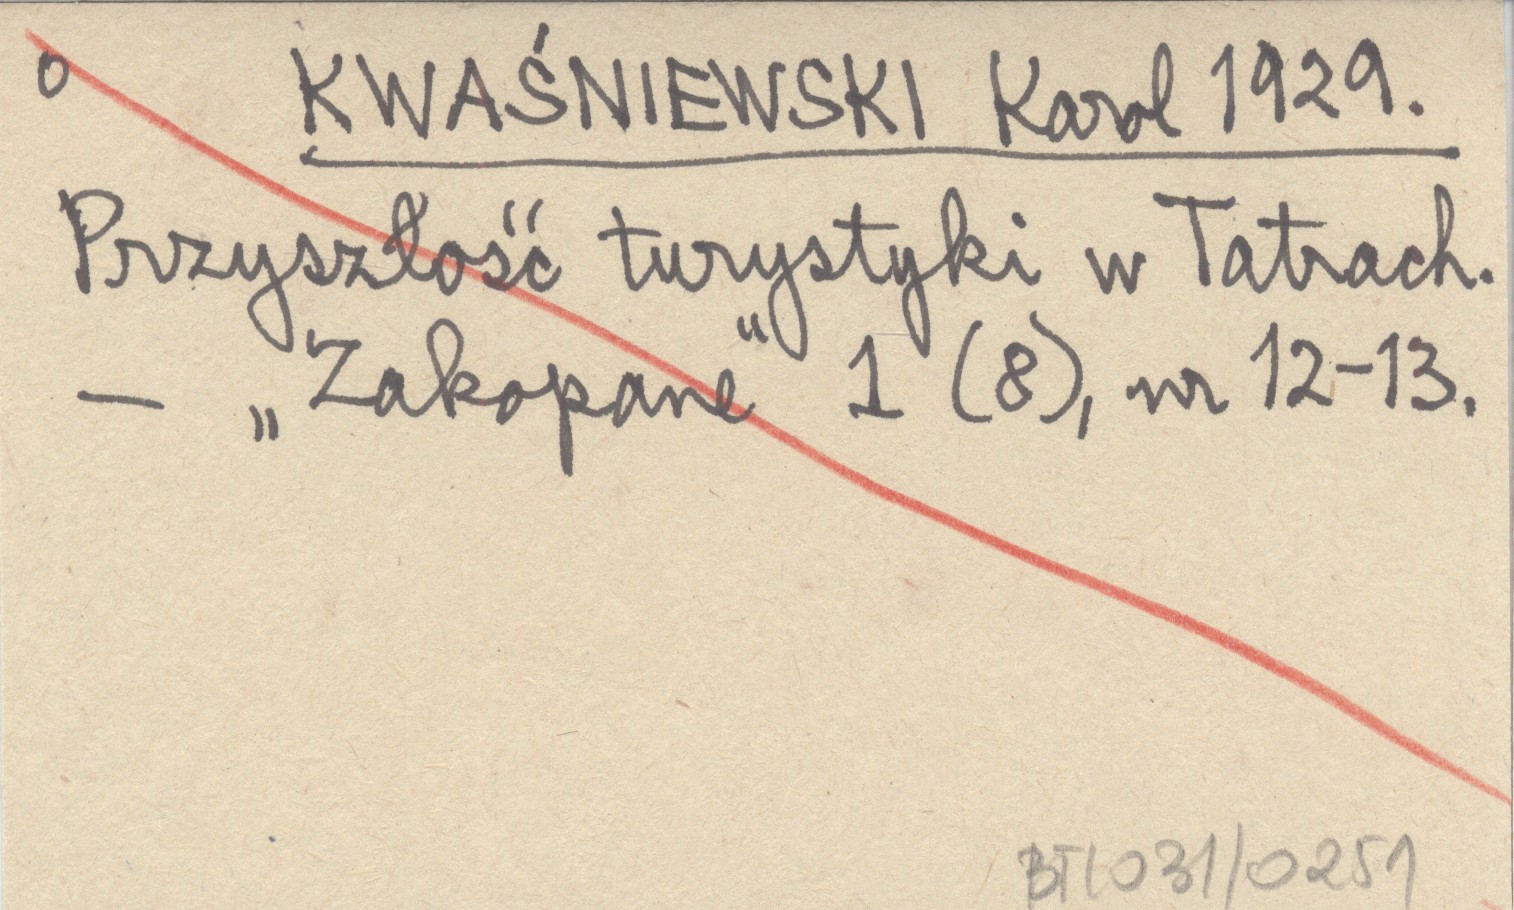 o KWAŚNIEWSKI Karol 1929.
Przyszłość turystyki w Tatrach.
— „Zakopane" 1 (8), nr 12-13.
BTL031/0251